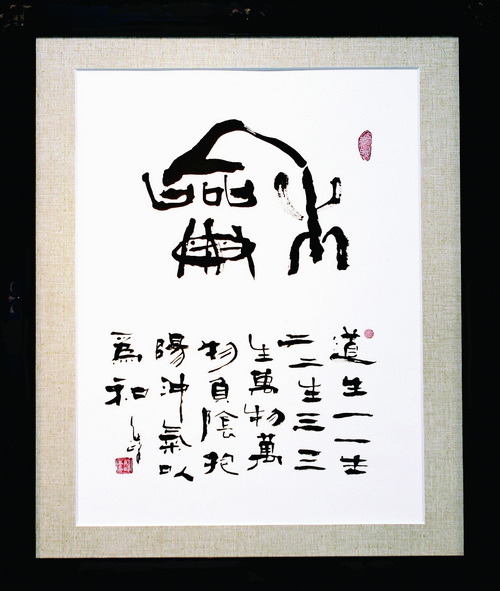 龢
道生一一生
二二生三三
生萬物萬
物負陰抱
陽沖氣以
爲和